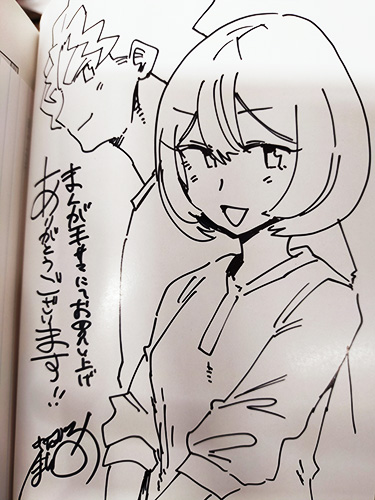 まんが王サマにてお買い上げ
ありがとうございます!!